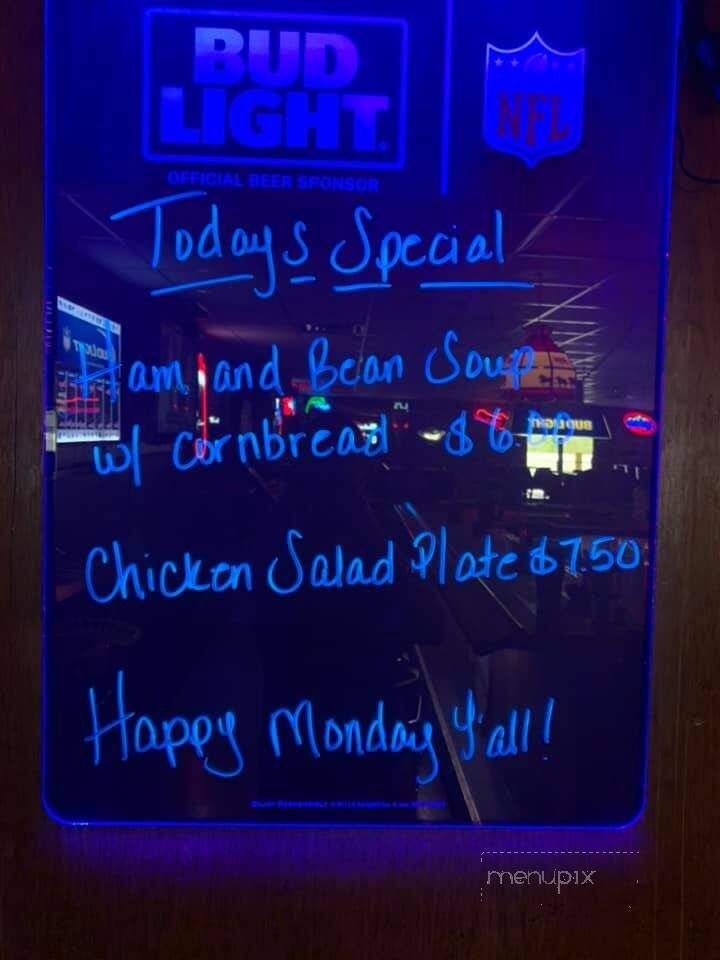 BUD
LIGHT.
OFFICIAL BEER SPONSOR
NFL
Todays Special
Ham and Bean Soup
w/ cornbread $6.00
Chicken Salad Plate $7.50
Happy Monday Y'all!
menupix